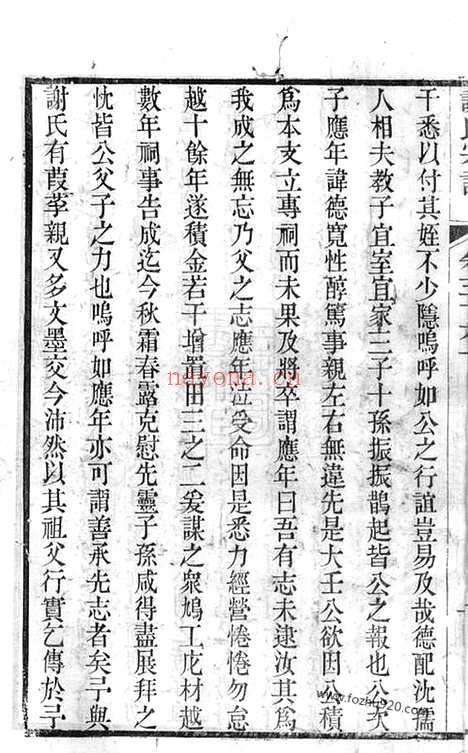 干悉以付其姪不少隱嗚呼如公之行誼豈易及哉德配沈孺
人相夫教子宜室宜家三子十孫振振鵲起皆公之報也公次
子應年諱德寬性醇篤事親左右無違先是大壬公欲因公積
爲本支立專祠而未果及將卒謂應年曰吾有志未逮汝其爲
我成之無忘乃父之志應年泣受命因是悉力經營惓惓勿怠
越十餘年遂積金若干增置田三之二爰謀之衆鳩工庀材越
數年祠事告成迄今秋霜春露克慰先靈子孫咸得盡展拜之
忱皆公父子之力也嗚呼如應年亦可謂善承先志者矣予與
謝氏有葭莩親又多文墨交今沛然以其祖父行實乞傳於予
nayona.cn
www.fozhu920.com